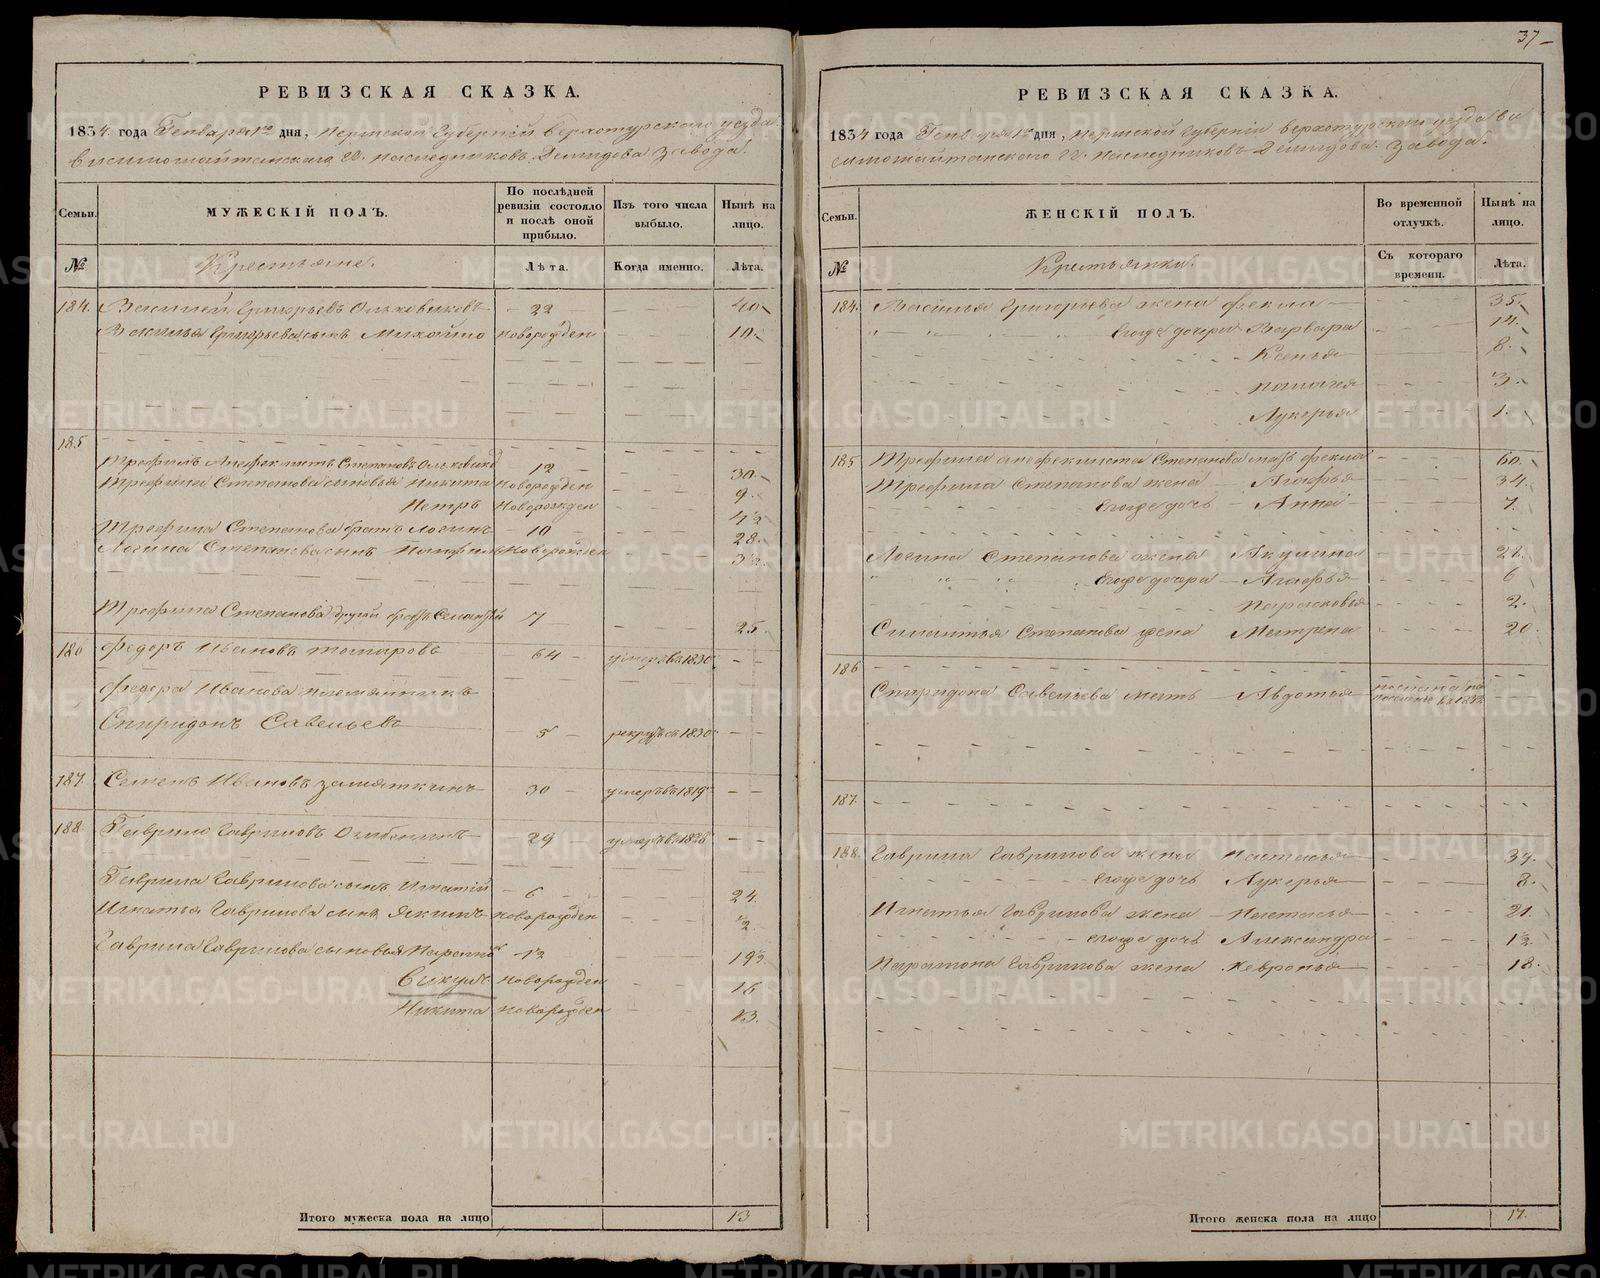 РЕВИЗСКАЯ СКАЗКА.
1834. года Генваря 1го дня, Пермской Губернiи Верхотурскаго уезда
Висимошайтанскаго Гг. наследниковъ Демидова завода.
Семьи.
МУЖЕСКIЙ ПОЛЪ.
По послѣдней ревизiи состояло и послѣ оной прибыло.
Изъ того числа выбыло.
Нынѣ на лицо.
№
Крестьяне.
Лѣта.
Когда именно.
Лѣта.
184. Василий Григорьевъ Ольховиковъ 22 40
Василья Григорьева сынъ Михайло новорожден 10.
185
Трефилъ Степановъ 12 30.
Трефила Степанова сыновья Никита новорожден 9.
Петръ Новорожден 4½
Трефила Степанова братъ Логинъ 10 28.
Логина Степанова сынъ Панфилъ Новорожден 3½.
Трефила Степанова другой братъ 7 25.
186 Федоръ Ивановъ 64 умеръ въ 1830
Федора Иванова племянникъ
Спиридонъ Савельевъ 5 рекрутъ съ 1830
187. Семенъ Ивановъ Замяткинъ 30 умеръ въ 1819
188. Гаврило Гавриловъ 29 умеръ въ 1828
Гаврила Гаврилова сынъ Игнатiй 6 24.
Игнатья Гаврилова сынъ Якимъ новорожден ½.
Гаврила Гаврилова сыновья 19½.
Викулъ новорожден 16
Никита новорожден 13.
Итого мужеска пола на лицо 13
37
РЕВИЗСКАЯ СКАЗКА.
1834 года Генваря 1го дня, Пермской Губернiи Верхотурскаго уезда Ви
симошайтанскаго Гг. наследниковъ Демидова завода.
Семьи.
ЖЕНСКIЙ ПОЛЪ.
Во временной отлучкѣ.
Нынѣ на лицо.
№
Крестьянки.
Съ котораго времени.
Лѣта.
184. Василья Григорьева жена Фекла 35.
Егоже дочери Варвара 14.
Ксенья 8.
Палагея 3.
Лукерья 1.
185 Трефила Степанова мать Фекла 60.
Трефила Степанова жена Агафья 34.
Егоже дочь Анна 7.
Логина Степанова жена Акулина 28.
Егоже дочери Агафья 6
Парасковья 2.
Степанова жена Матрена 20.
186
Спиридона Савельева мать Авдотья
187.
188. Гаврила Гаврилова жена Настасья
Егоже дочь Лукерья 8.
Игнатья Гаврилова жена Настасья 21.
Егоже дочь Александра 1½.
Парамона Гаврилова жена Хевронья 18.
Итого женска пола на лицо 17.
METRIKI.GASO-URAL.RU